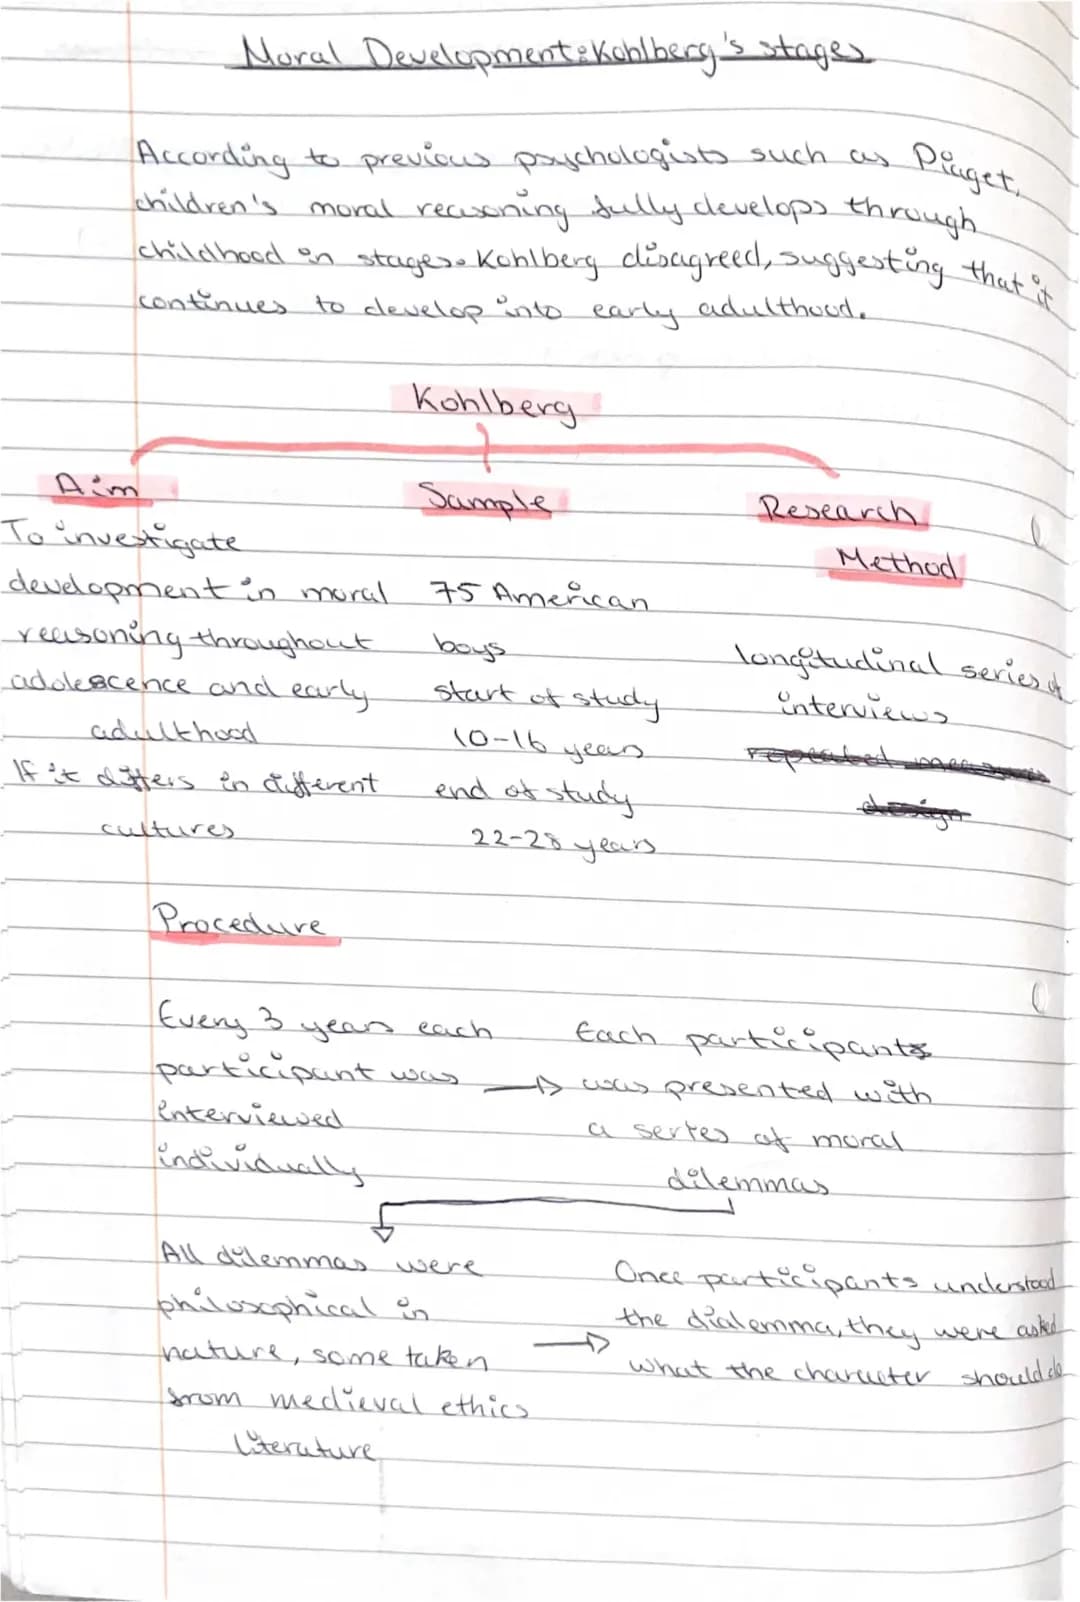 Moral Development: Kohlberg's stages
According to previous psychologists such as Piaget,
children's moral reasoning fully develops through
childhood in stages. Kohlberg disagreed, suggesting that it
continues to develop into early adulthood.
Kohlberg
Aim
To investigate
development in moral
reasoning throughout
adolescence and early
adulthood
If it differs in different
cultures
Sample
75 American
boys
start of study
10-16 years
end of study
22-28 years
Research
Method
longitudinal series of
interviews
repeated measures
design
Procedure
Every 3 years each
participant was
interviewed
individually
Each participants
was presented with
a series of moral
dilemmas
All dilemmas were
philosophical in
nature, some taken
from medieval ethics
literature
Once participants understood
the dialemma, they were asked
what the character should do